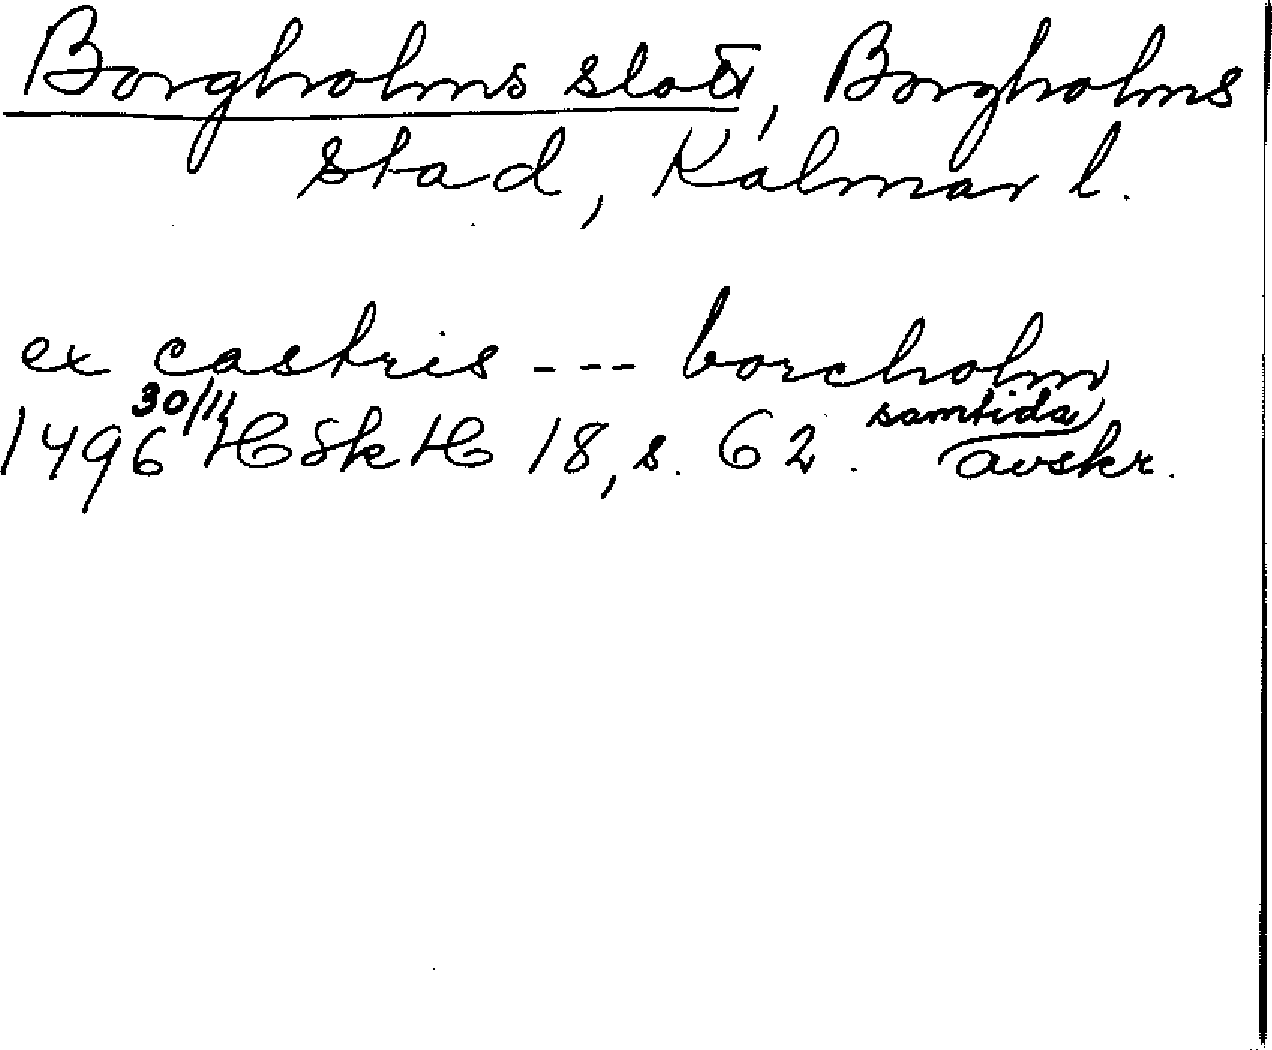 Borgholms slott, Borgholms
stad, Kalmar l.
ex castris --- borcholm
1496 30/11 HSkH 18, s. 62. samtida avskr.